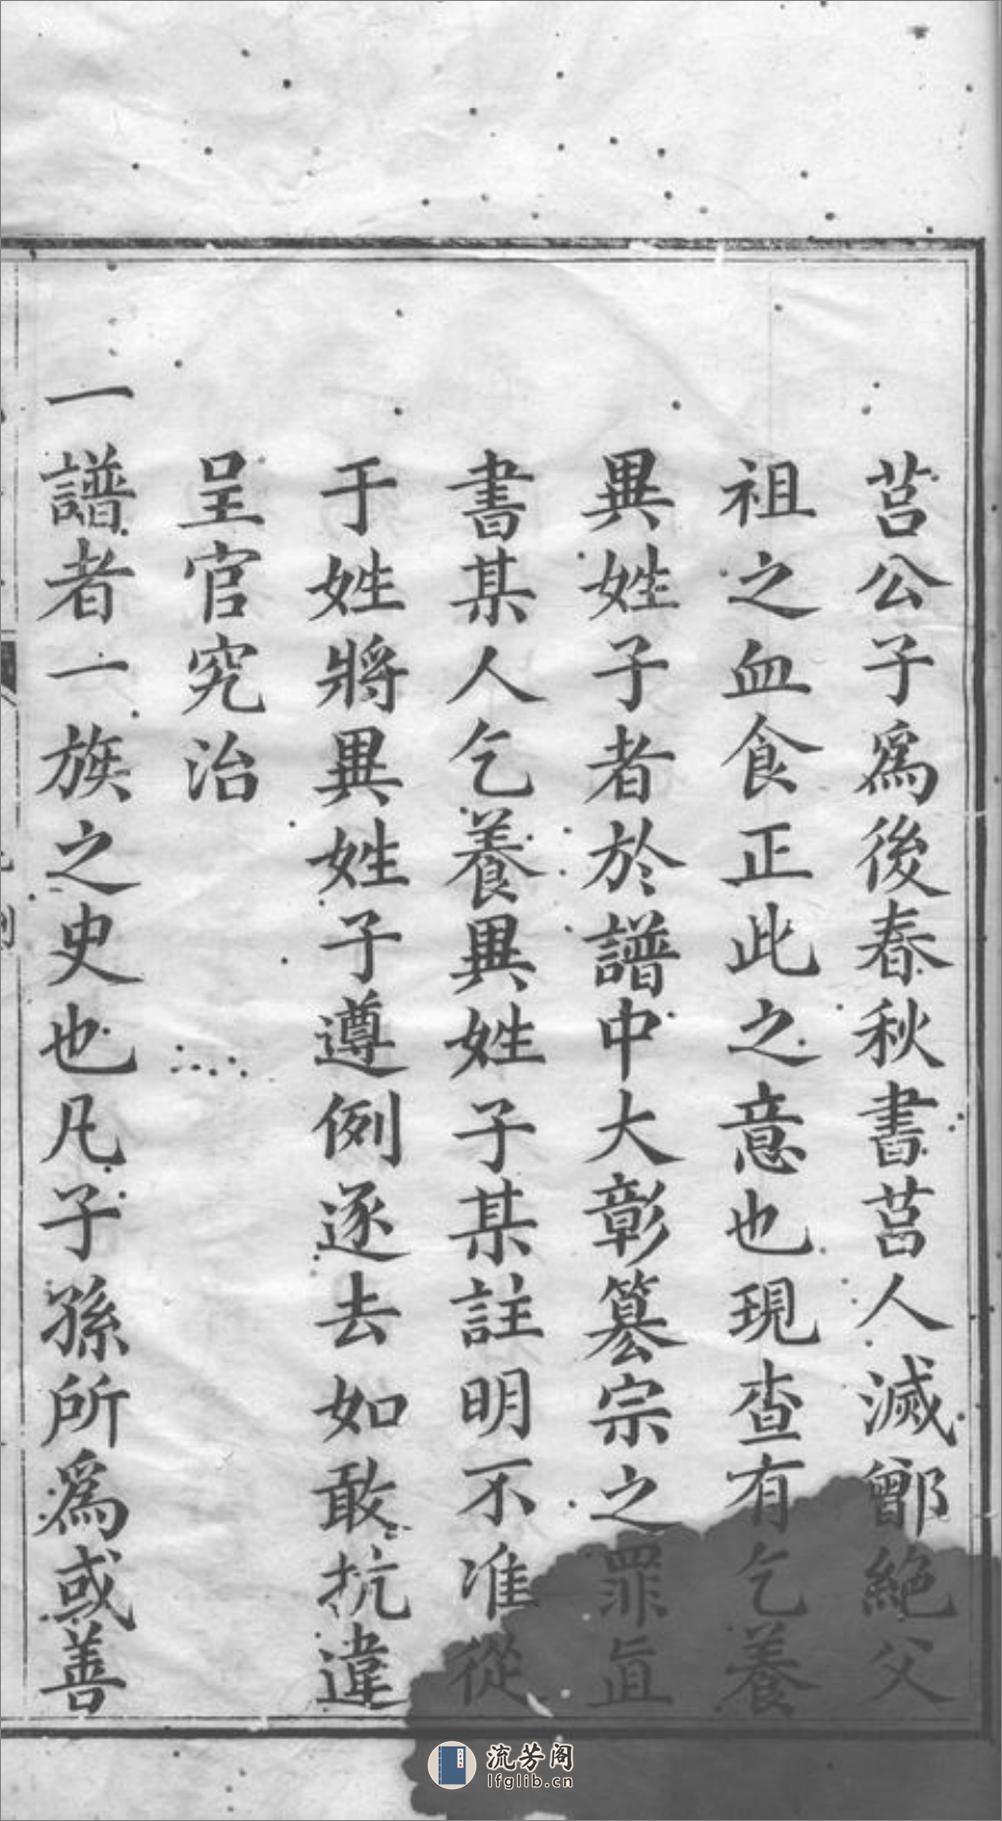 莒公子爲後春秋書莒人滅鄫絕父
祖之血食正此之意也現查有乞養
異姓子者於譜中大彰簒宗之罪直
書某人乞養異姓子某註明不准從
于姓將異姓子遵例逐去如敢抗違
呈官究治
一譜者一族之史也凡子孫所爲或善
流芳阁
lfglib.cn